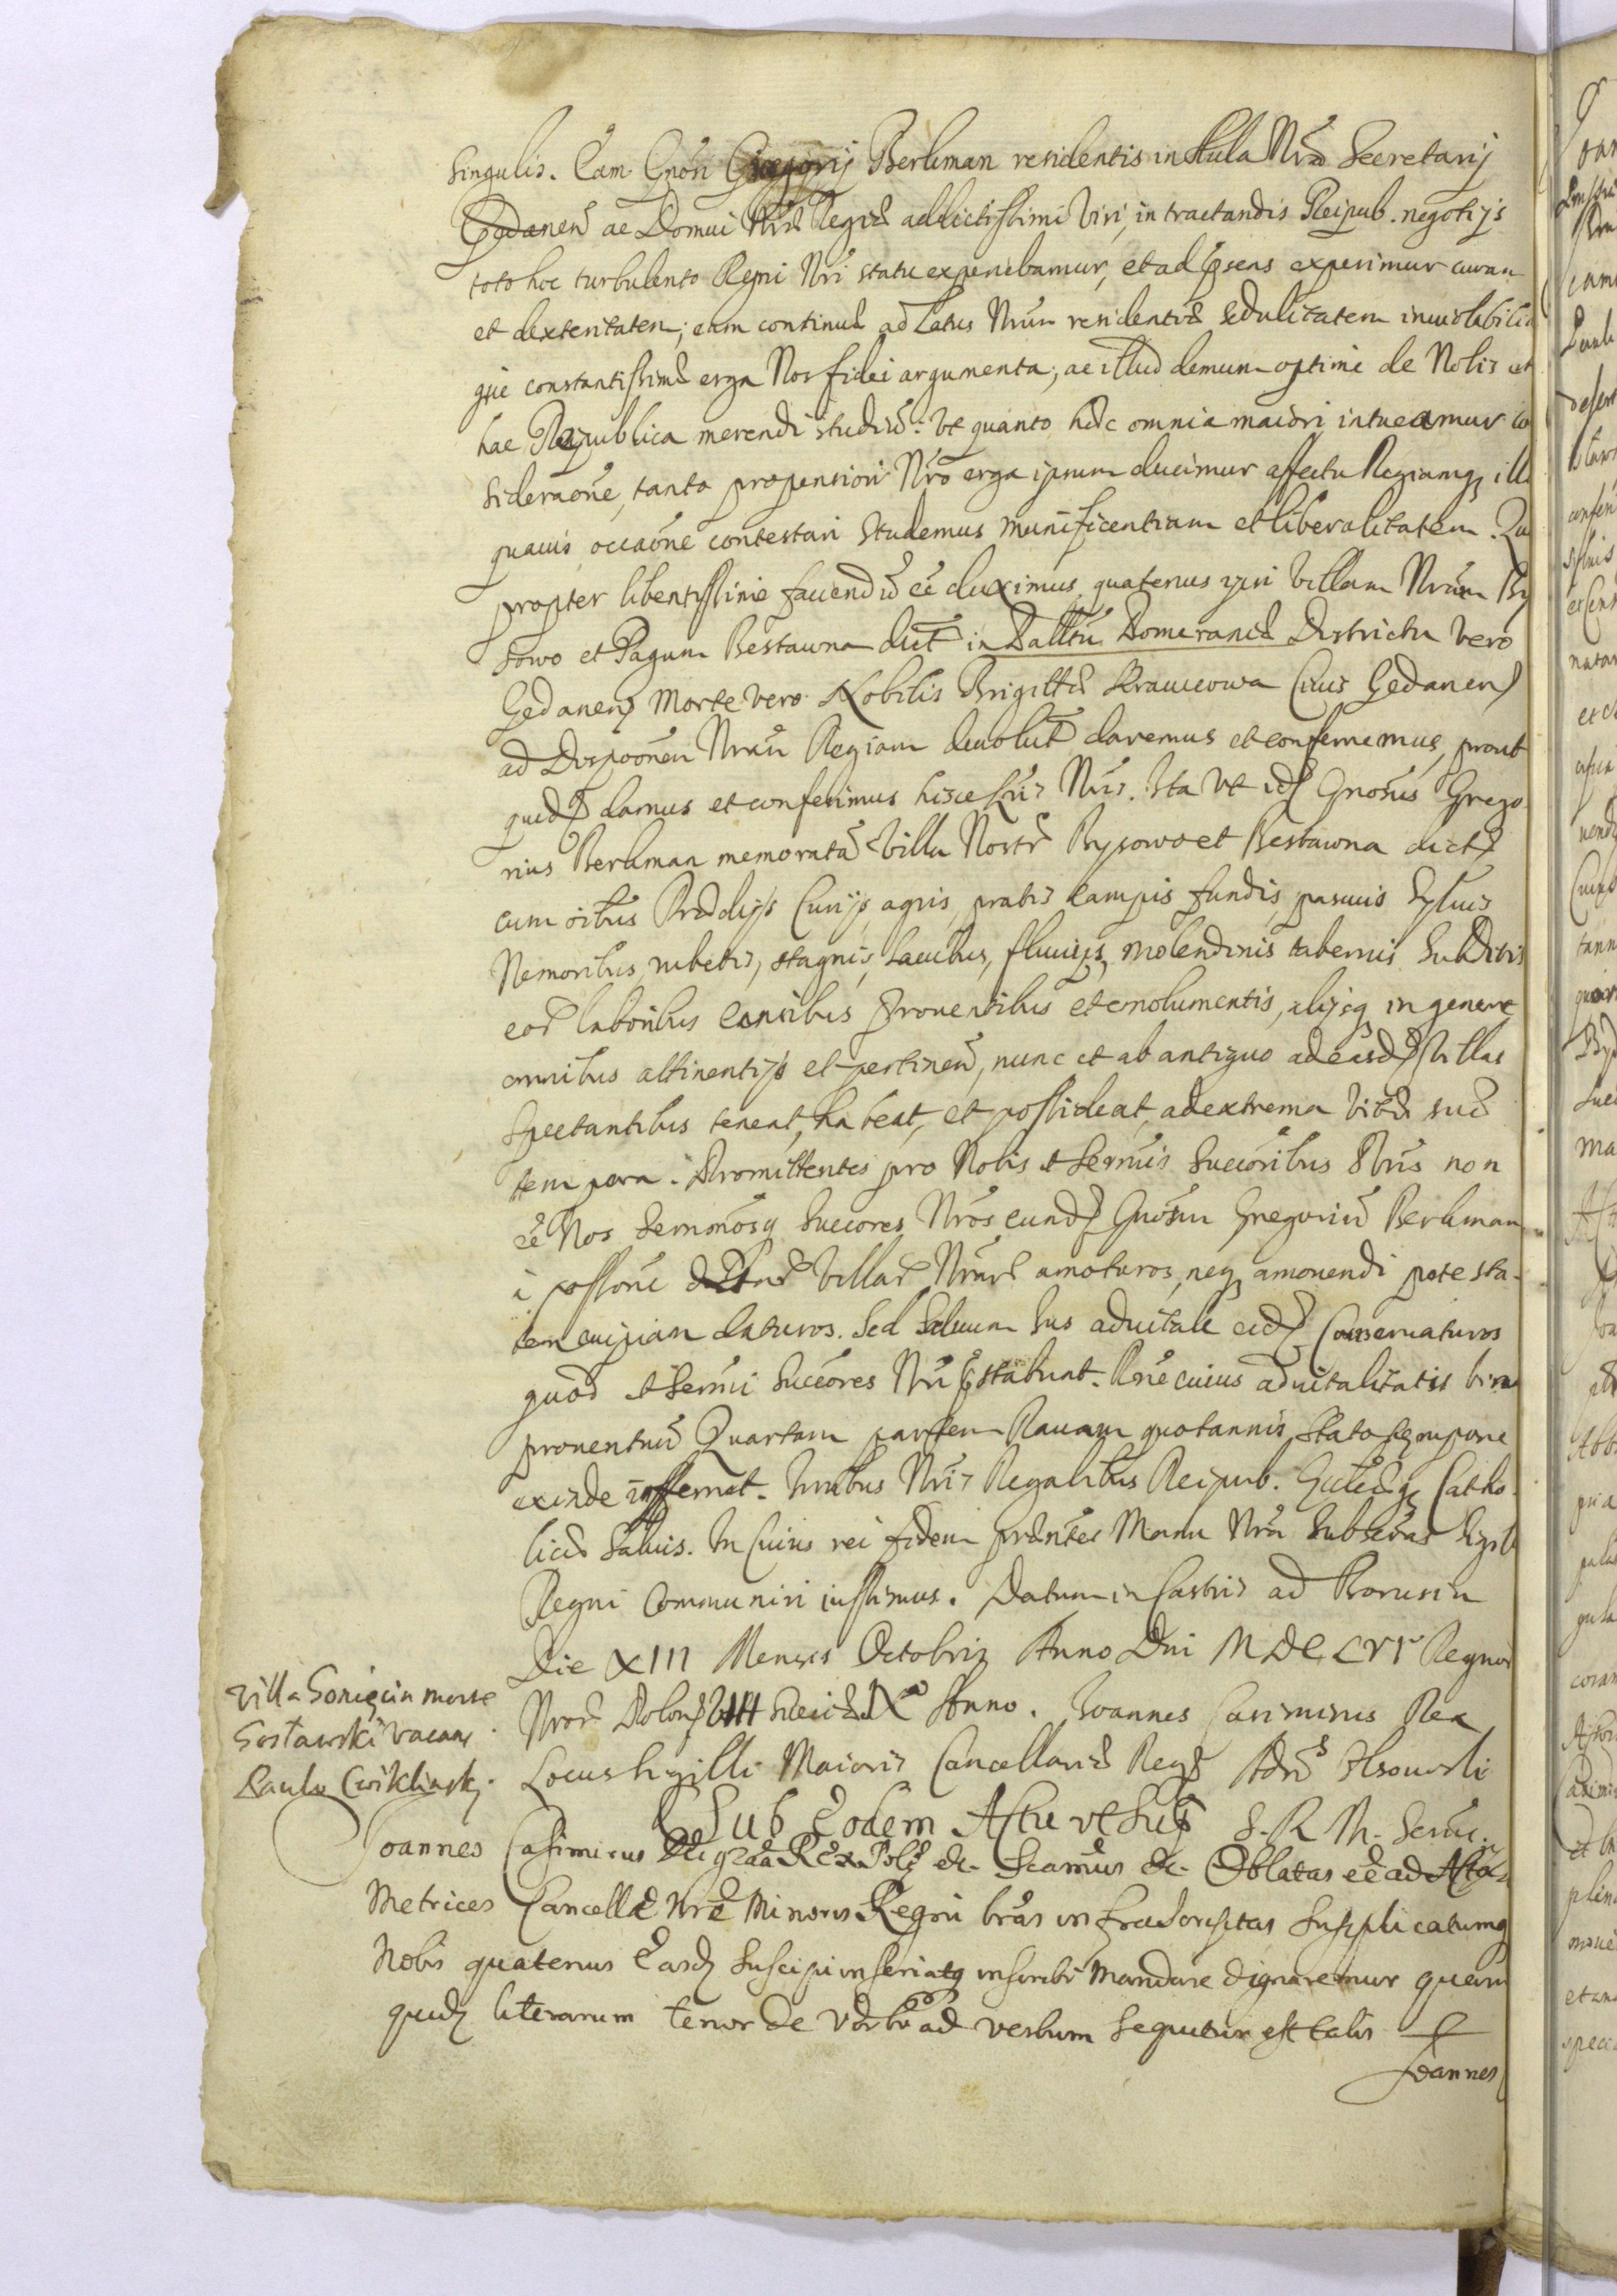 Singulis. Eam Gnosi Gregorij Berkman residentis in Aula Nra Secretarij
Gedanen ac Domui Nrae Regiae addictissimi Viri, in tractandis Reipub. negotijs
toto hoc turbulento Regni Nri statu experiebamur, et ad psens experimur curam
et dexteritatem; eam continuae ad Latus Nrum residentiae sedulitatem inuiolabilia
que constantissimae erga Nos fidei argumenta, ac illud demum optime de Nobis et
hac Republica merendi studiu: Vt quanto haec omnia maiori intueamur co
sideraone, tanto propensiori Nro erga ipsum ducimur affectu Regiamq illi
quauis occaone contestari Studemus munificentiam et liberalitatem. Qua
propter libentissime fauendu ee duximus quatenus ipsi Villam Nram By
sowo et Pagum Bestawna dict in Pallatu Pomeraniae Districtu vero
Gedanen Morte vero Nobilis Brigittae Krawcowa Ciuis Gedanen
ad Dispoonem Nram Regiam deuolut daremus et conferremus, prout
quid damus et conferimus hisce Lris Nris. Ita Vt id Gnosus Grego
rius Berkman memorata Villa Nostr Bysowo et Bestawna dict
cum oibus Praedijs Curijs agris, pratis campis fundis, pascuis Syluis
Nemoribus, rubetis, stagnis, lacibus, fluuijs, molendinis tabernis Subditis
eor laboribus censibus prouentibus et emolumentis, alijsq in genere
omnibus attinentijs et pertinen, nunc et ab antiquo ad easd Villas
Spectantibus teneat, habeat, et possideat ad extrema Vitae suae
tempora. Promittentes pro Nobis et Sermis Succoribus Nris non
ee Nos Sermosq Succores Nros eund Gnosum Gregoriu Berkman
a possone Villar Nrar amoturos, neq amouendi potesta-
tem cuipiam daturos. Sed Saluum Ius aduitale eid Conseruaturos
quod et Sermi Succores Nri pstabunt. Rone cuius aduitalitatis
prouentuu Quartam partem Rauam quotannis Stato tempore
exinde inferret. Iuribus Nris Regalibus Reipub. Eccleaeq Catho-
licae Saluis. In Cuius rei fidem prantes Manu Nra Subscras Sigill
Regni Communiri iussimus. Datum in Castris ad
Die XIII Mensis Octobris Anno Dni MDCLVI Regnor
Nror Polon VIII Sueciae IX Anno. Ioannes Casimirus Rex
Locus Sigilli Maioris Cancellariae Regni
Villa Gorięcin morte
Sostawski vacans
Paulo Cwiklinski.
Sub Eodem Actu vt Sup S. R. M. Secrius
Ioannes Casimirus Dei graa Rex Pol &c. Scamus &c. Oblatas ee ad Acta
Metrices Cancellae Nrae Minoris Regni lras infradescriptas Supplicatumq
Nobis quatenus Easd Suscipi inseriatq inscribi Mandare dignaremur quarum
quid literarum tenor de verbo ad verbum sequitur est talis
Ioannes